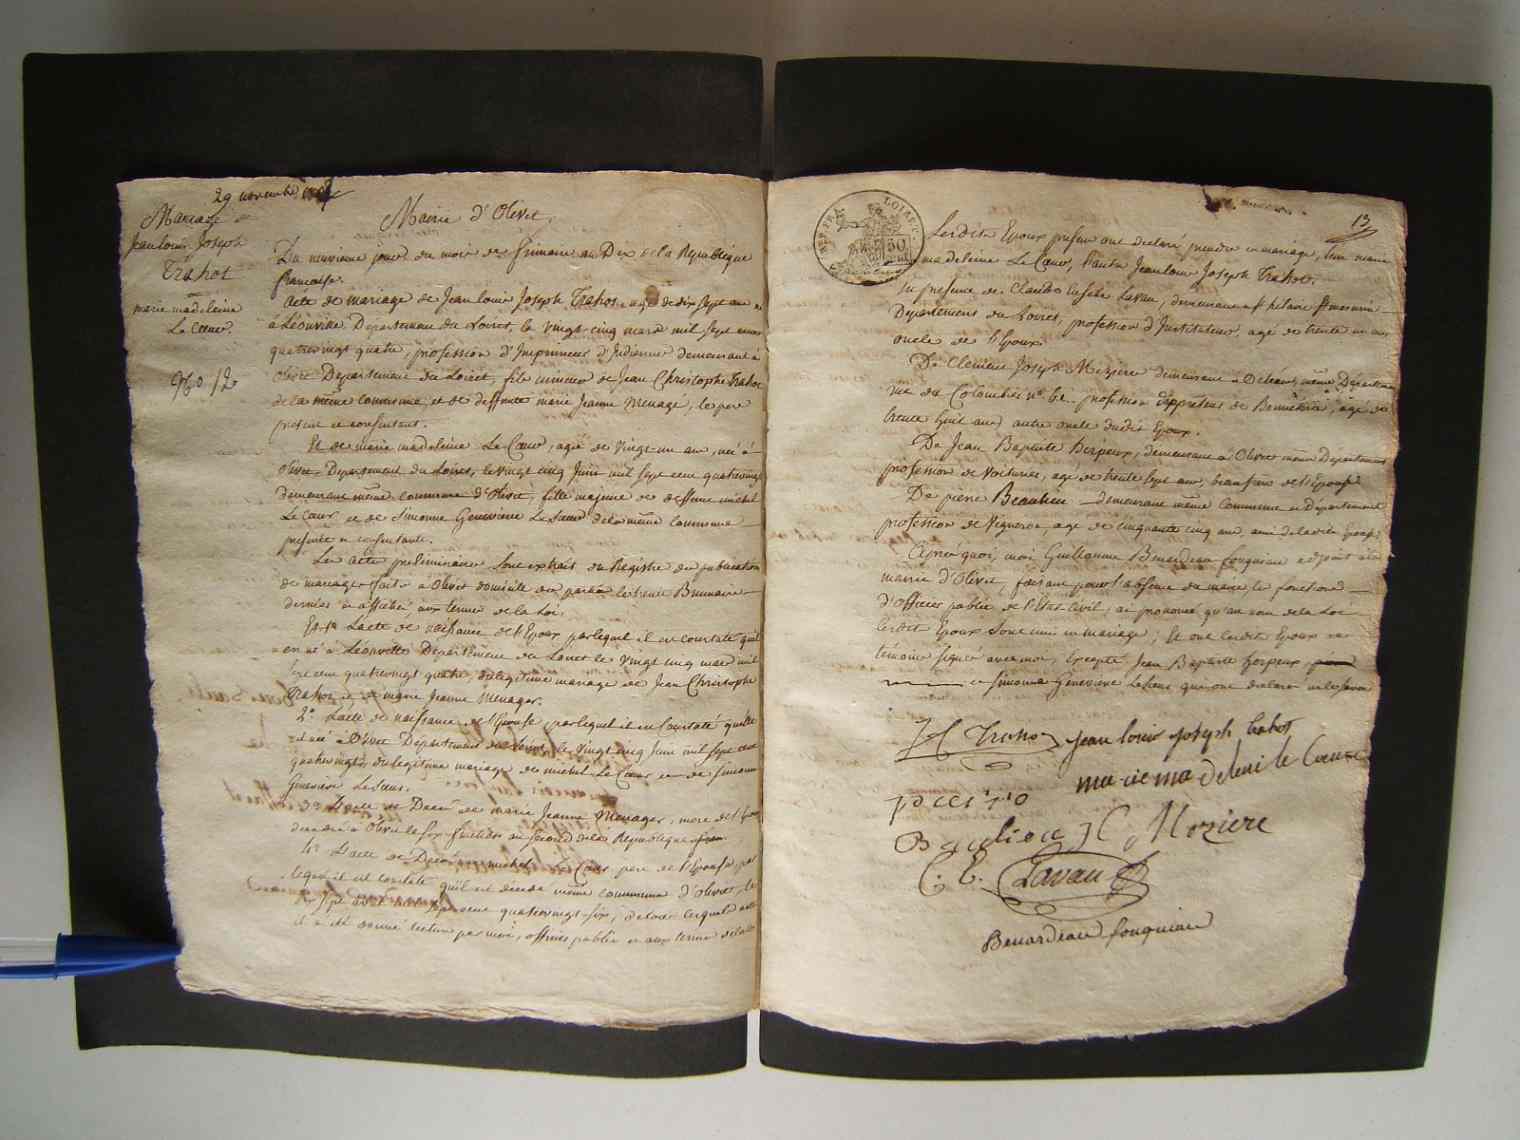 29 novembre
Mariage
Jean Louis Joseph
Trahot
marie madeleine
Le Cœur.
No 12
Mairie d'Olivet.
Du neuvieme jour du mois de frimaire an Dix de la Republique
francaise.
Acte de mariage de Jean louis Joseph Trahot, agé de dix sept ans né
à Léouville Departement du Loiret, le vingt cinq mars mil sept cent
quatrevingt quatre, profession d'Imprimeur d'Indienne demeurant à
Olivet Departement du Loiret, fils mineur de Jean Christophe Trahot
de la même commune, et de deffunte marie Jeanne Menagé, le pere
present et consentant.
Et de marie madeleine Le Cœur, agée de vingt-un ans, née à
Olivet Departement du Loiret, le vingt cinq Juin mil sept cent quatrevingt
demeurant même commune d'Olivet, fille majeure de deffunt michel
Le Cœur, et de Simonne Genevieve Le Sueur de la même commune
presente et consentante.
Les actes preliminaires sont extrait du Registre des publications
de mariage fait à Olivet domicile des parties le trente Brumaire
dernier et affichés aux termes de la loi.
L'acte de naissance de l'Epoux par lequel il est constaté qu'il
est né à Léouville Departement du Loiret le vingt cinq mars mil
sept cent quatrevingt quatre, du legitime mariage de Jean Christophe
Trahot et de marie Jeanne Menager.
2º L'acte de naissance de l'Epouse, par lequel il est constaté qu'elle
est née à Olivet Departement du Loiret, le vingt cinq Juin mil sept cent
quatrevingt, du legitime mariage de michel Le Cœur et de Simonne
Genevieve Le Sueur.
L'acte de Décès de marie Jeanne Menager, mere de l'Epoux
decedée à Olivet le six fructidor an second de la Republique
L'acte de Décès de michel Le Cœur pere de l'Epouse par
lequel il est constaté qu'il est decedé même commune d'olivet, le
sept cent quatrevingt-six, de tous lesquels actes
il a été donné lecture par moi, officier public et aux termes de la loi
13
LOIRET
50
Lesdits Epoux presens ont declaré prendre en mariage, l'un marie
madeleine Le Cœur, l'autre Jean louis Joseph Trahot.
En presence de Claude Eusebe Lavau, demeurant à St hilaire St mesmin
Departement du Loiret, profession d'Instituteur, agé de trente un ans
oncle de l'Epoux
De Clement Joseph Mezière demeurant à Orléans, même Departement
rue du Colombier nº 61. profession d'appreteur de Bonneterie, agé de
trente huit ans, autre oncle dudit Epoux.
De Jean Baptiste herpeux, demeurant à Olivet même Departement
profession de Voiturier, agé de trente sept ans, beau frere de l'epouse
De pierre Beaulieu demeurant même Commune et Département
profession de Vigneron, agé de cinquante cinq ans, ami de ladite Epouse
Après quoi, moi, Guillaume Benardeau fouquiau adjoint à la
mairie d'Olivet, faisant pour l'absence du maire les fonctions
d'officier public de l'Etat Civil, ai prononcé qu'au nom de la Loi
lesdits Epoux sont unis en mariage; Et ont lesdits Epoux et
témoins signés avec moi, excepté Jean Baptiste herpeux,
et Simonne Genevieve LeSueur qui ont declaré ne le savoir
JC Trahot
Jean louis joseph trahot
marie madeleine le Cœur
Beauliou
JC Mezière
C. E. Lavau
Benardeau fouquiau